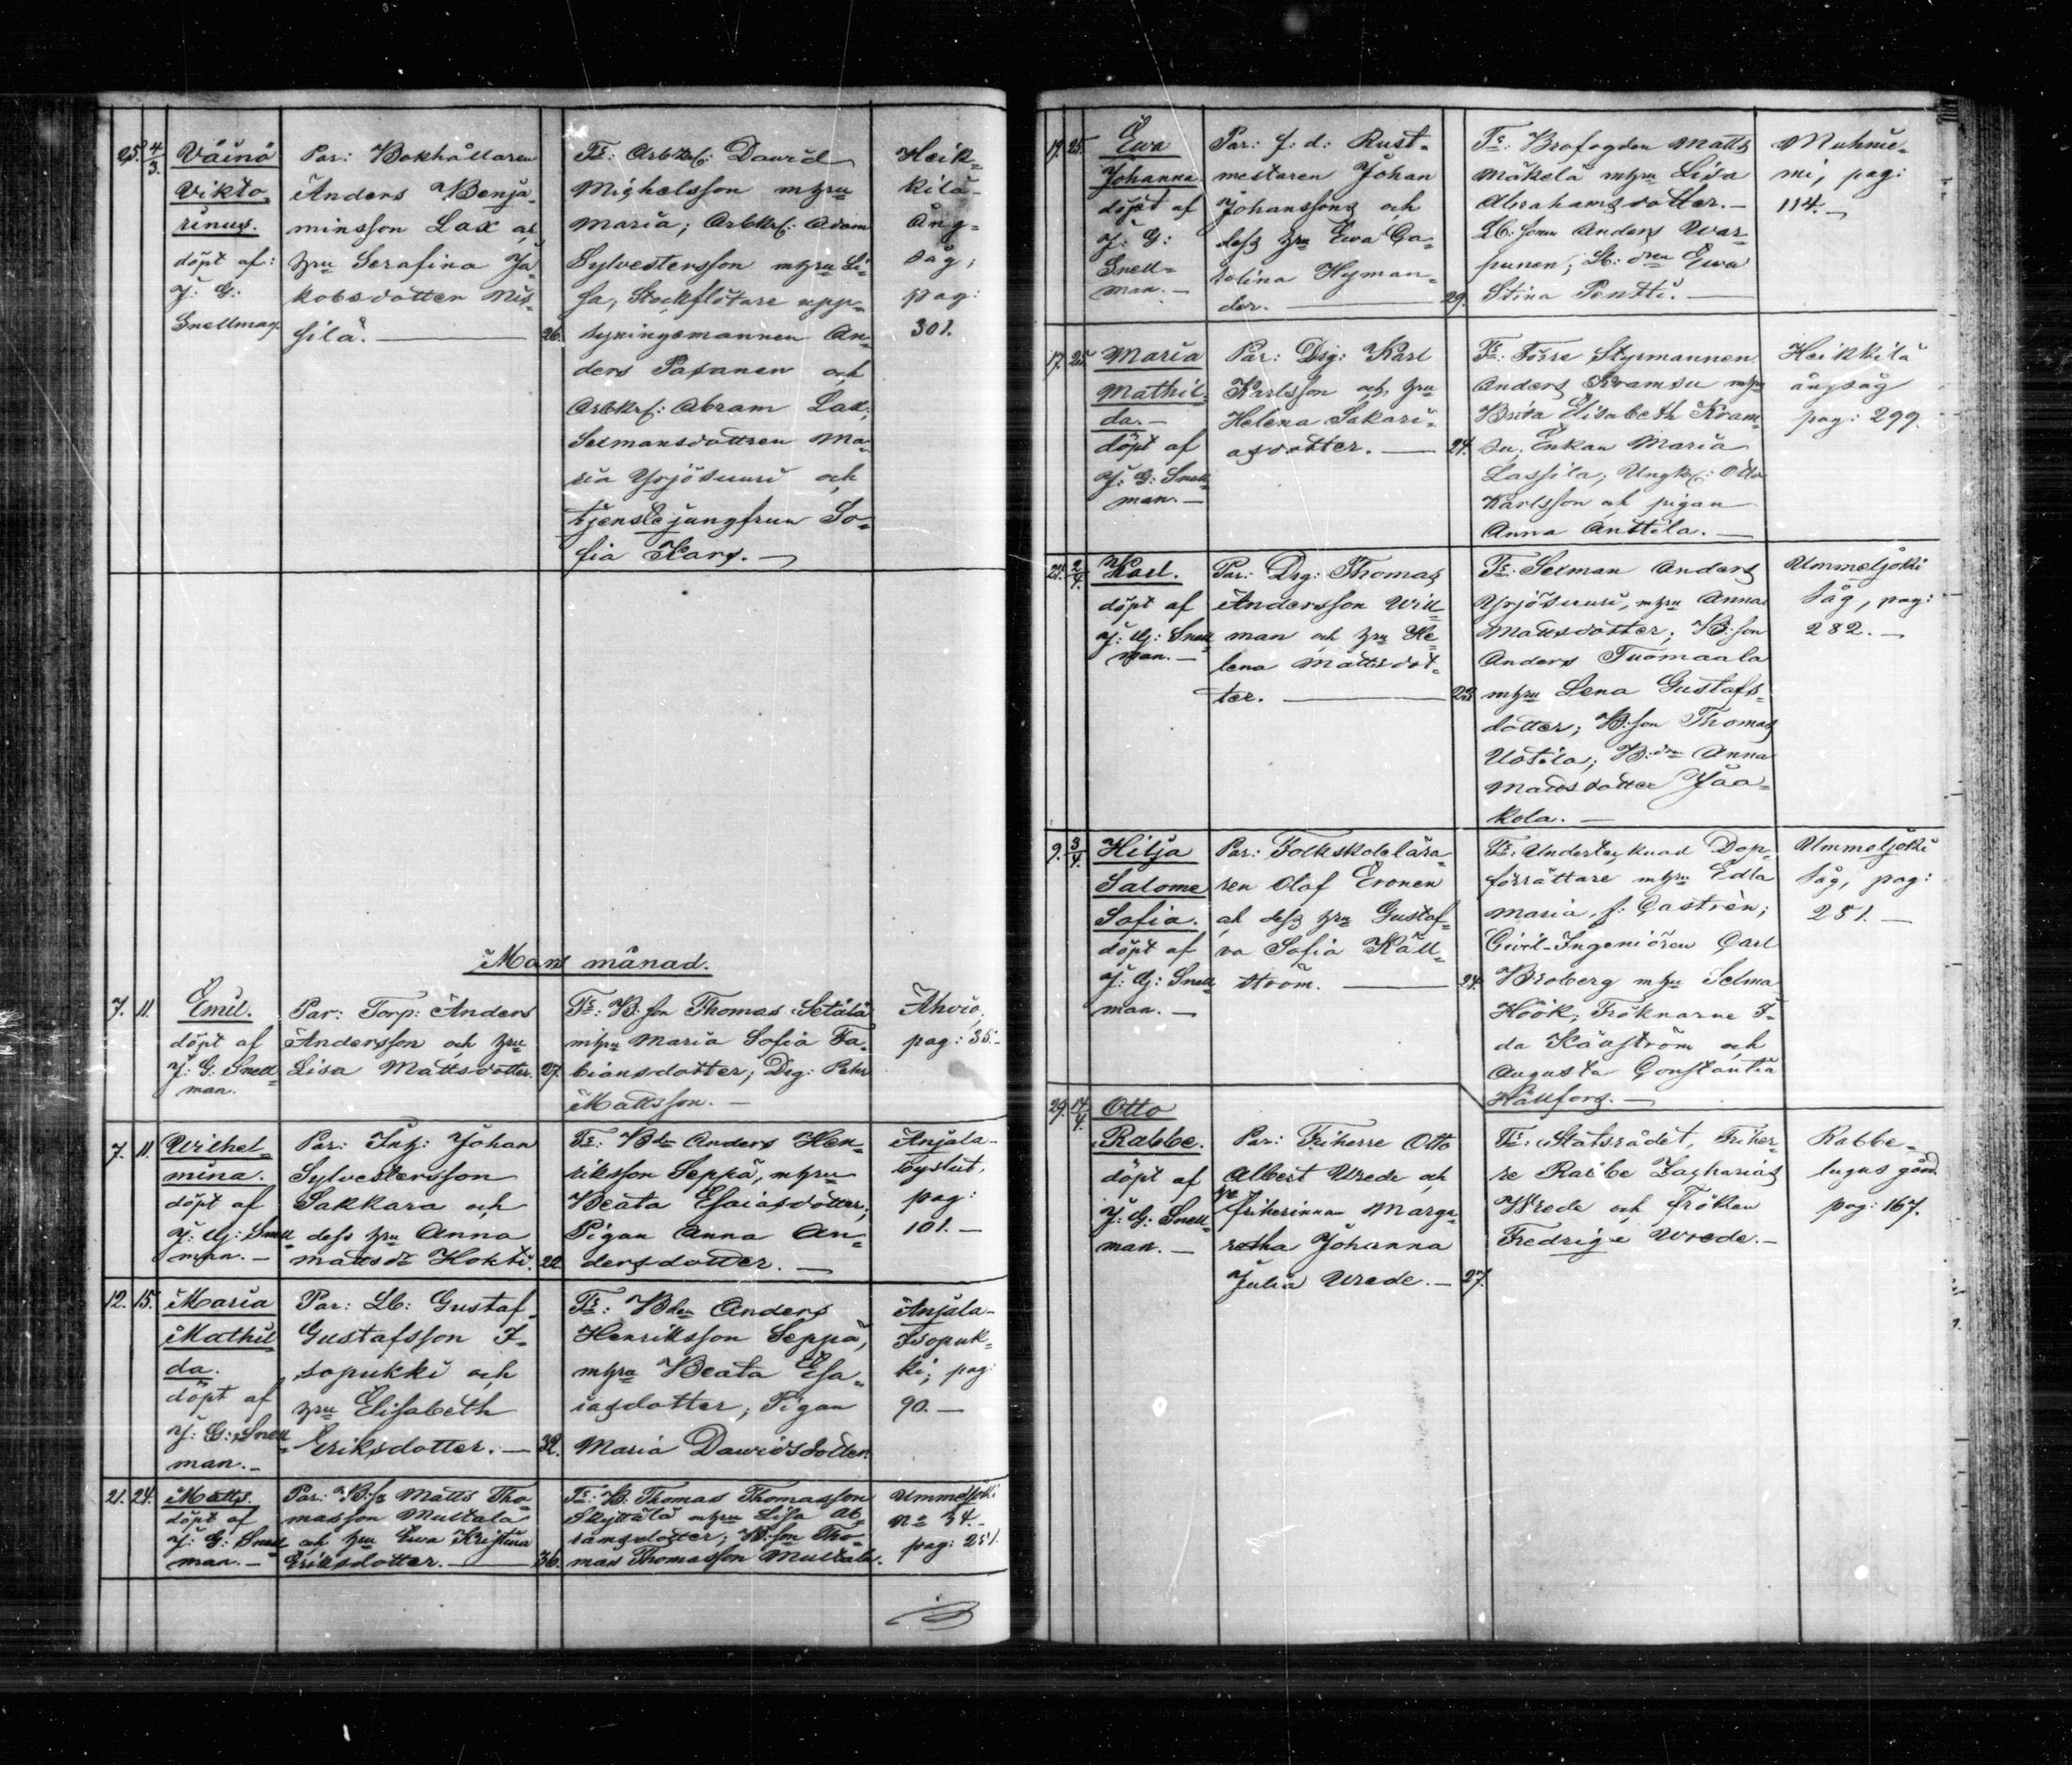 25. 4/3. Väinö
Vikto-
rinus.
döpt af:
J: G:
Snellman.
Par: Bokhållaren
Anders Benja-
minsson Lax och
hru Serafina Ja-
kobsdotter Mis-
silä. — 26.
Fr: Arbkrl: Dawid
Michelsson m hru
Maria; Arbkrl: Adam
Sylvestersson m hru Li-
sa, Stockflötare upp-
syningsmannen An-
ders Pasanen och
Arbkrl: Abram Lax;
Sexmansdottren Ma-
ria Yrjösuuri och
tjenstejungfrun So-
fia Kars. —
Heik-
kilä-
Ång-
såg,
pag:
301.
Mars månad.
7. 11. Emil.
döpt af
J: G. Snell-
man.
Par: Torp: Anders
Andersson och hru
Lisa Mattsdotter. 27.
Fr: B: son Thomas Setälä
m hru Maria Sofia Fa-
biansdotter; Drg: Petter
Mattsson. —
Ahvio,
pag: 35.-
7. 11. Wilhel-
mina.
döpt af
J: G: Snell-
man. —
Par: Inh: Johan
Sylvestersson
Sakkara och
dess hru Anna
Mattsdr Hokki. 22.
Fr: Bdn Anders Hen-
riksson Seppä, m hru
Beata Esaiasdotter;
Pigan Anna An-
dersdotter. —
Anjala-
byslut,
pag:
101. —
12. 15. Maria
Mathil-
da.
döpt af
J: G: Snell-
man. —
Par: Lb: Gustaf
Gustafsson I-
sopukki och
hru Elisabeth
Eriksdotter. — 32.
Fr: Bdn Anders
Henriksson Seppä,
m hru Beata Esa-
iasdotter, Pigan
Maria Dawidsdotter.
Anjala-
Isopuk-
ki; pag:
90. —
21. 24. Matts.
döpt af
J: G: Snell-
man. —
Par: B:sn Matts Tho-
masson Multala
och hru Ewa Kristina
Eriksdotter. — 36.
Fr: B: Thomas Thomasson
Skyttälä m hru Lisa Ab-
ramsdotter; B:son Tho-
mas Thomasson Multala.
Ummeljoki
No 34.-
pag: 251.
17. 25. Ewa
Johanna
döpt af
J: G:
Snell-
man. —
Par: f: d: Rust-
mestaren Johan
Johansson och
dess hru Ewa Ca-
rolina Hyman-
der. — 29.
Fr: Brofogden Matts
Mäkelä m hru Lisa
Abrahamsdotter. —
Lb: sonen Anders War-
punen; Lb: dren Ewa
Stina Pentti. —
Muhnie-
mi, pag:
114. —
17. 25. Maria
Mathil-
da. —
döpt af
J: G: Snell-
man. —
Par: Drg: Karl
Karlsson och hru
Helena Sakari-
asdotter. — 24.
Fr: Förre Styrmannen
Anders Kramsu m hru
Brita Elisabeth Kram-
su, Enkan Maria
Lassila; Ungk: Otto
Karlsson och pigan
Anna Anttila. —
Heikkilä
ångsåg
pag: 299.
21. 2/4. Karl.
döpt af
J: G: Snell-
man. —
Par: Drg: Thomas
Andersson Will-
man och hru He-
lena Mattsdot-
ter. — 22.
Fr: Sexman Anders
Yrjösuuri, m hru Anna
Mattsdotter; B: son
Anders Tuomaala
m hru Lena Gustafs-
dotter; B: son Thomas
Uotila; B: drn Anna
Mattsdotter Jaa-
kola. —
Ummeljoki
såg, pag:
282. —
9. 3/4. Hilja
Salome
Sofia.
döpt af
J: G: Snell-
man. —
Par: Folkskolelära-
ren Olof Eronen
och dess hru Gustaf-
va Sofia Käll-
ström. — 24.
Fr: Undertecknad Dop-
förrättare m hru Edla
Maria, f: Castrèn;
Civil-Ingeniören Carl
Broberg m hru Selma
Höök; Fröknarne I-
da Källström och
Augusta Constantia
Hällfors. —
Ummeljoki
såg, pag:
251. —
29. 14/4. Otto
Rabbe.
döpt af
J: G: Snell-
man. —
Par: Friherre Otto
Albert Wrede och
friherinnan Marga-
retha Johanna
Julia Wrede. — 27.
Fr: Statsrådet, Friher-
re Rabbe Zacharias
Wrede och Fröken
Fredrige Wrede. —
Rabbe-
lugns gård
pag: 167.